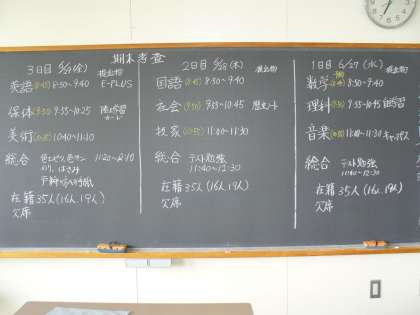 期末考査
3日目 6/29(金) 提出物
英語 (8:45) 8:50~9:40 E-PLUS
保体 (9:50) 9:55~10:25
美術 10:40~11:10
総合 11:20~12:10
のり、はさみ
在籍 35人(16人、19人)
欠席
2日目 6/28(木) 提出物
国語 (8:45) 8:50~9:40
社会 (9:50) 9:55~10:45 歴史ノート
技家 (10:55) 11:00~11:30
総合 テスト勉強
11:40~12:30
在籍 35人(16人、19人)
欠席
1日目 6/27(水) 提出物
数学 (8:45) 8:50~9:40
理科 (9:50) 9:55~10:45
音楽 11:00~11:30 キャンパス
総合 テスト勉強
11:40~12:30
在籍 35人(16人、19人)
欠席